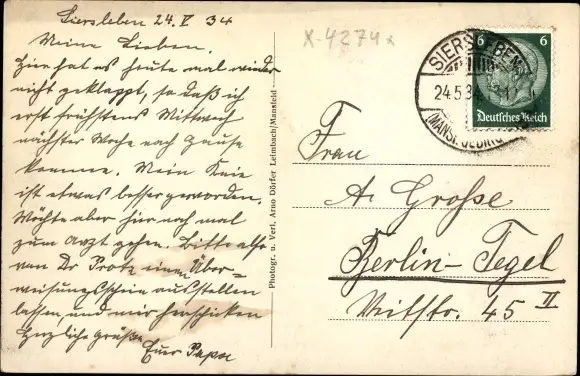 Siersleben 24. V 34
Meine Lieben.
Hier hat es heute mal wieder
nicht geklappt, so daß ich
erst frühstens Mittwoch
nächster Woche nach Hause
komme. Mein Knie
ist etwas besser geworden.
Möchte aber hier noch mal
zum Arzt gehen. Bitte also
von Dr Protz einen Über-
weisungsschein ausstellen
lassen und mir herschicken
Herzliche Grüße
Euer Papa
X-4274x
Photogr. u. Verl. Arno Dörfer Leimbach/Mansfeld
SIERSLEBEN
24.5.34
(MANSF.
6 6
Deutsches Reich
Frau
A. Große
Berlin-Tegel
Veitstr. 45 II